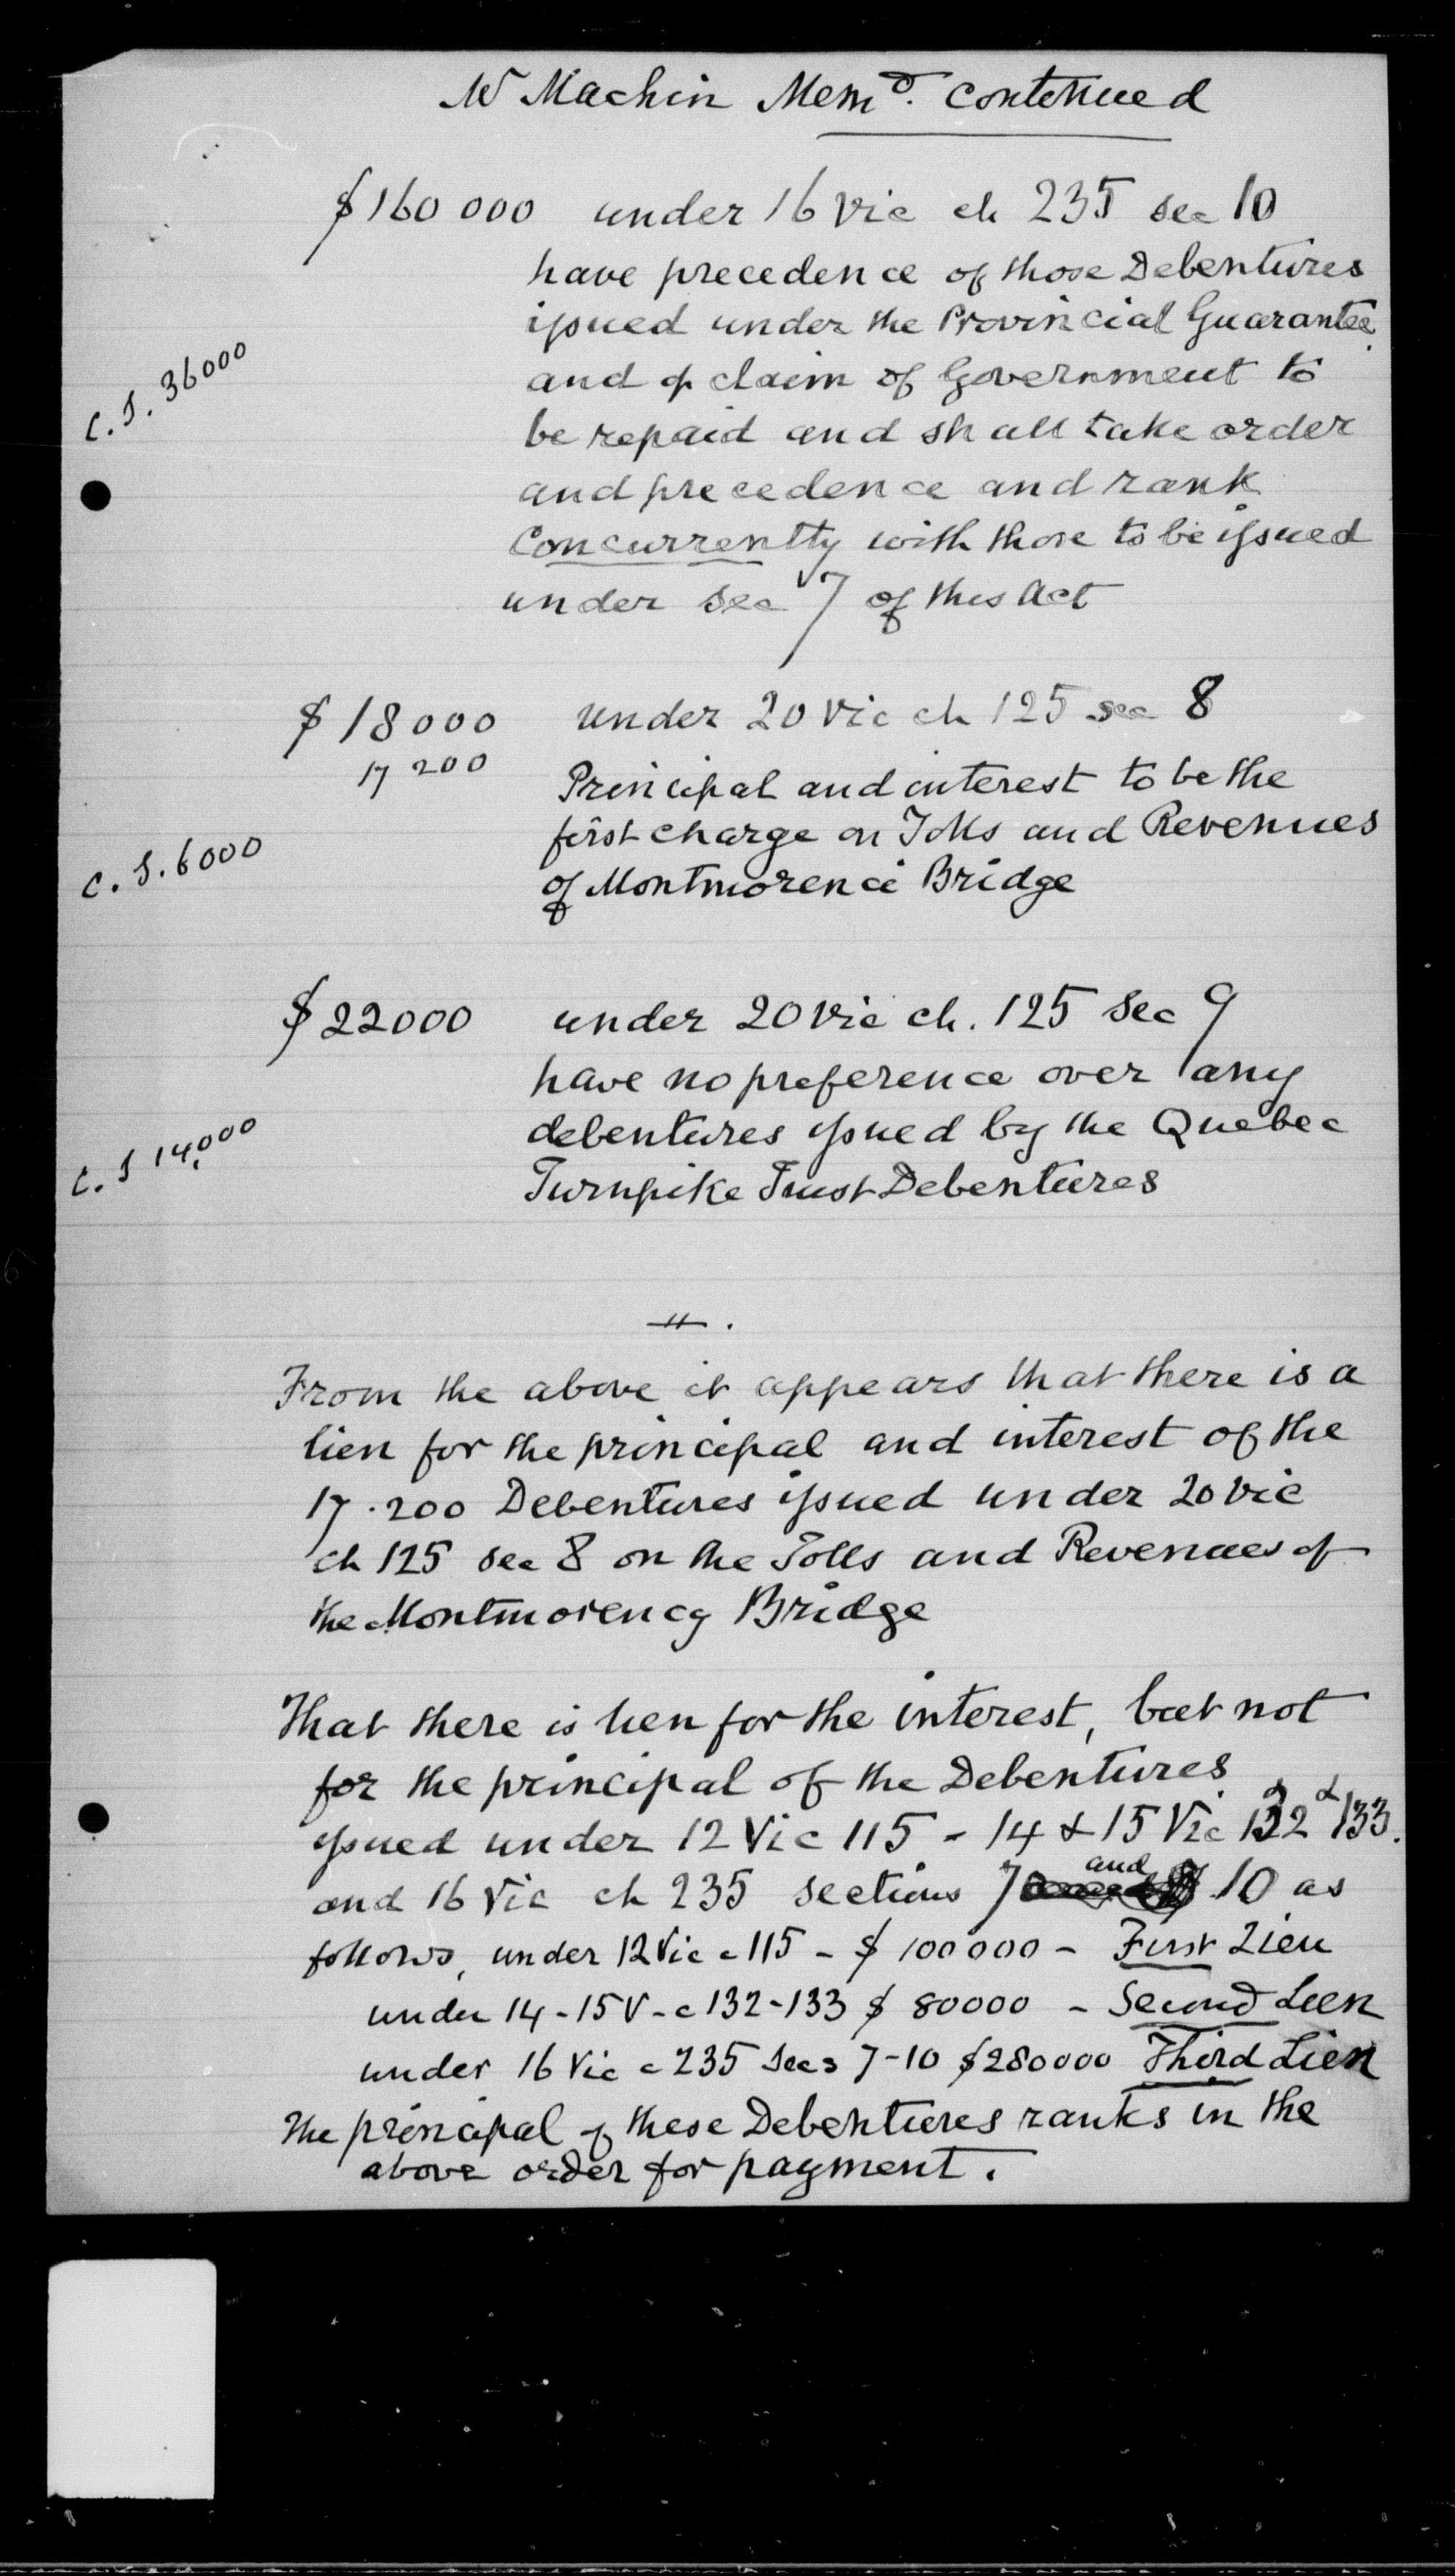 Mr Machin Memo. continued
$160 000 under 16 Vic ch 235 sec 10
have precedence of those Debentures
issued under the Provincial Guarantee
C. S. 36000
and of claim of Government to
be repaid and shall take order
and precedence and rank
concurrently with those to be issued
under sec 7 of this Act
$ 18000 under 20 Vic ch 125 sec 8
17 200
Principal and interest to be the
first charge on Tolls and Revenues
C. S. 6000
of Montmorenci Bridge
$ 22000 under 20 Vic ch. 125 Sec 9
have no preference over any
debentures issued by the Quebec
C. S 14,000
Turnpike Trust Debentures
From the above it appears that there is a
lien for the principal and interest of the
17.200 Debentures issued under 20 Vic
ch 125 sec 8 on the Tolls and Revenues of
the Montmorency Bridge
That there is lien for the interest, but not
for the principal of the Debentures
issued under 12 Vic 115 - 14 & 15 Vic 132 & 133.
and 16 Vic ch 235 sections 7 and 10 as
follows, under 12 Vic c 115 - $ 100000 - First Lien
under 14-15 V - c 132-133 $ 80000 - Second Lien
under 16 Vic c 235 Secs 7-10 $280000 Third Lien
The principal of these Debentures ranks in the
above order for payment.